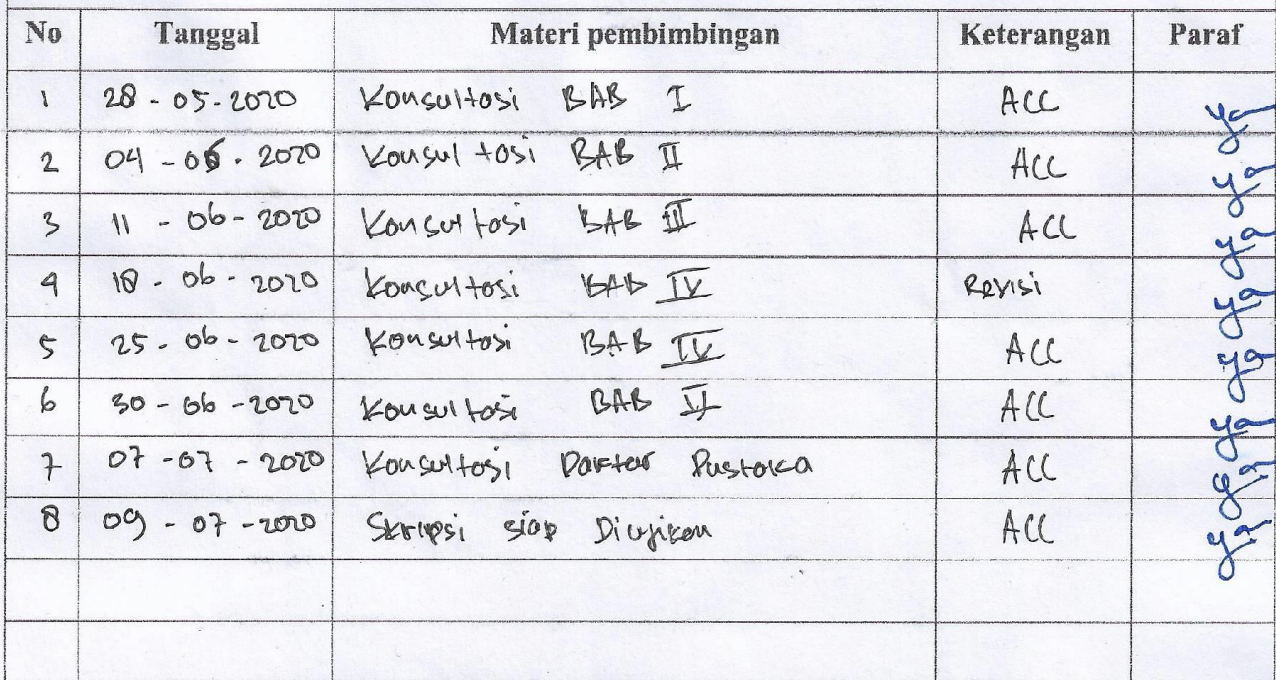 No Tanggal Materi pembimbingan Keterangan Paraf
1 28 - 05 - 2020 Konsultasi BAB I ACC
2 04 - 06 - 2020 Konsultasi BAB II ACC
3 11 - 06 - 2020 Konsultasi BAB III ACC
4 18 - 06 - 2020 Konsultasi BAB IV Revisi
5 25 - 06 - 2020 Konsultasi BAB IV ACC
6 30 - 06 - 2020 Konsultasi BAB V ACC
7 07 - 07 - 2020 Konsultasi Daftar Pustaka ACC
8 09 - 07 - 2020 Skripsi siap Diujikan ACC